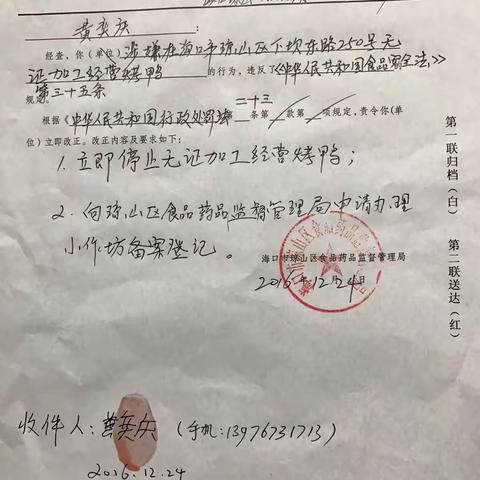 黄奕庆：
经查，你（单位）涉嫌在海口市琼山区下坎东路250号无
证加工经营烤鸭 的行为，违反了《中华人民共和国食品安全法》
第三十五条
规定。
根据《中华人民共和国行政处罚法》二十三条第 款第 项规定，责令你(单
位）立即改正。改正内容及要求如下：
1. 立即停止无证加工经营烤鸭；
2. 向琼山区食品药品监督管理局申请办理
小作坊备案登记。
海口市琼山区食品药品监督管理局
2016年12月24日
第一联归档（白） 第二联送达（红）
收件人：黄奕庆（手机：13976731713）
2016.12.24